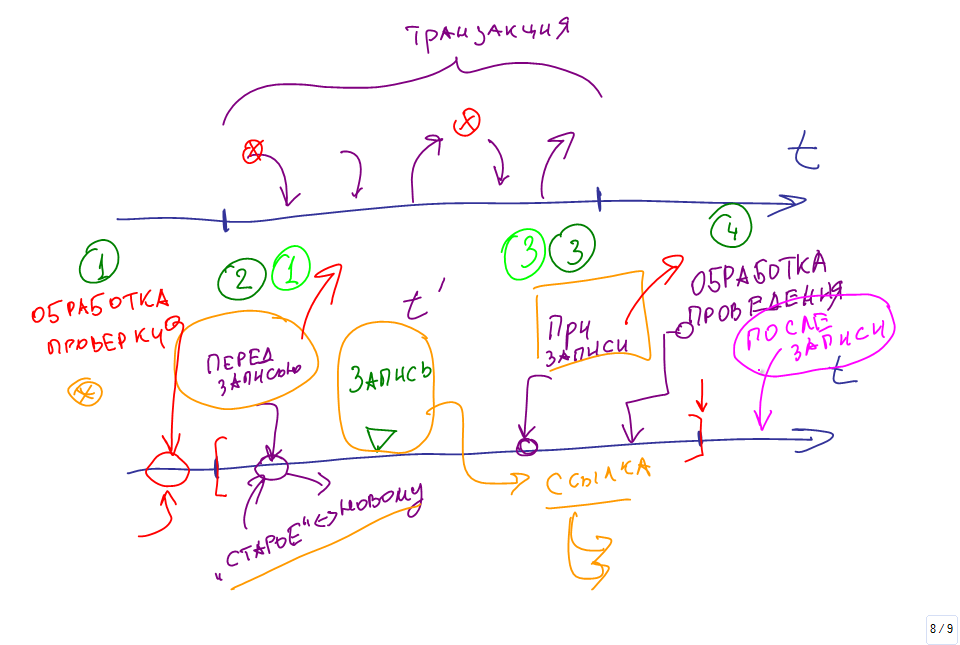 ТРАНЗАКЦИЯ
t
1
2
1
3
3
4
ОБРАБОТКА
ПРОВЕРКИ
ПЕРЕД
ЗАПИСЬЮ
t'
ЗАПИСЬ
ПРИ
ЗАПИСИ
ОБРАБОТКА
ПРОВЕДЕНИЯ
ПОСЛЕ
ЗАПИСИ
t
"СТАРОЕ" <-> НОВОМУ
ССЫЛКА
8 / 9